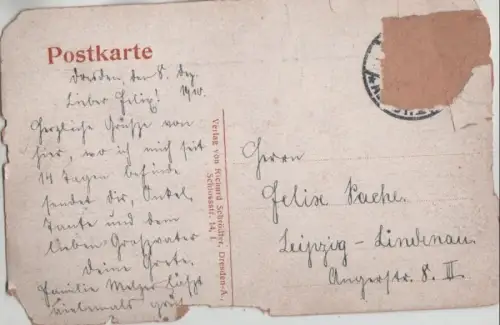 Postkarte
Dresden, den 8. Dez.
1910.
Lieber Felix!
Herzliche Grüsse von
hier, wo ich mich seit
14 Tagen befinde
sendet dir, Onkel,
Tante und dem
lieben Grossvater
deine Grete.
Familie Melzer lässt
vielemals
Verlag von Richard Schröder, Dresden-A.,
Schlossstr. 14, I.
Herrn
Felix Pache.
Leipzig-Lindenau.
Angerstr. 8. III.